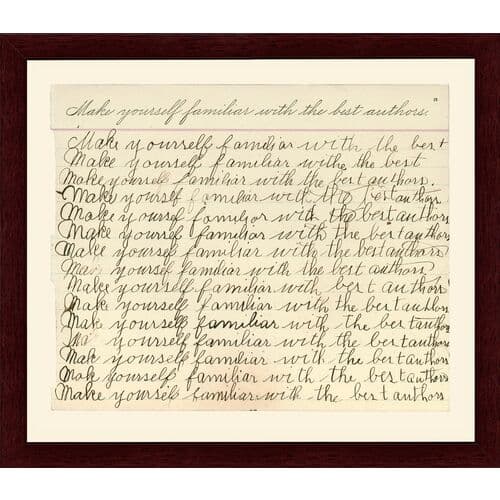 Make yourself familiar with the best authors.
Make yourself familiar with the best
Make yourself familiar withe the best
Make yourself familiar with the best authors.
Make yourself familiar with the best authors
Make yourself familiar with the best authors
Make yourself familiar with the best authors
Make yourself familiar with the best authors
yourself familiar with the best authors
Make yourself familiar with best authors
Make yourself familiar with the best authors
Make yourself familiar with the best authors
yourself familiar with the best authors
Make yourself familiar with the best authors
Make yourself familiar with the best authors
Make yourself familiar with the best authors